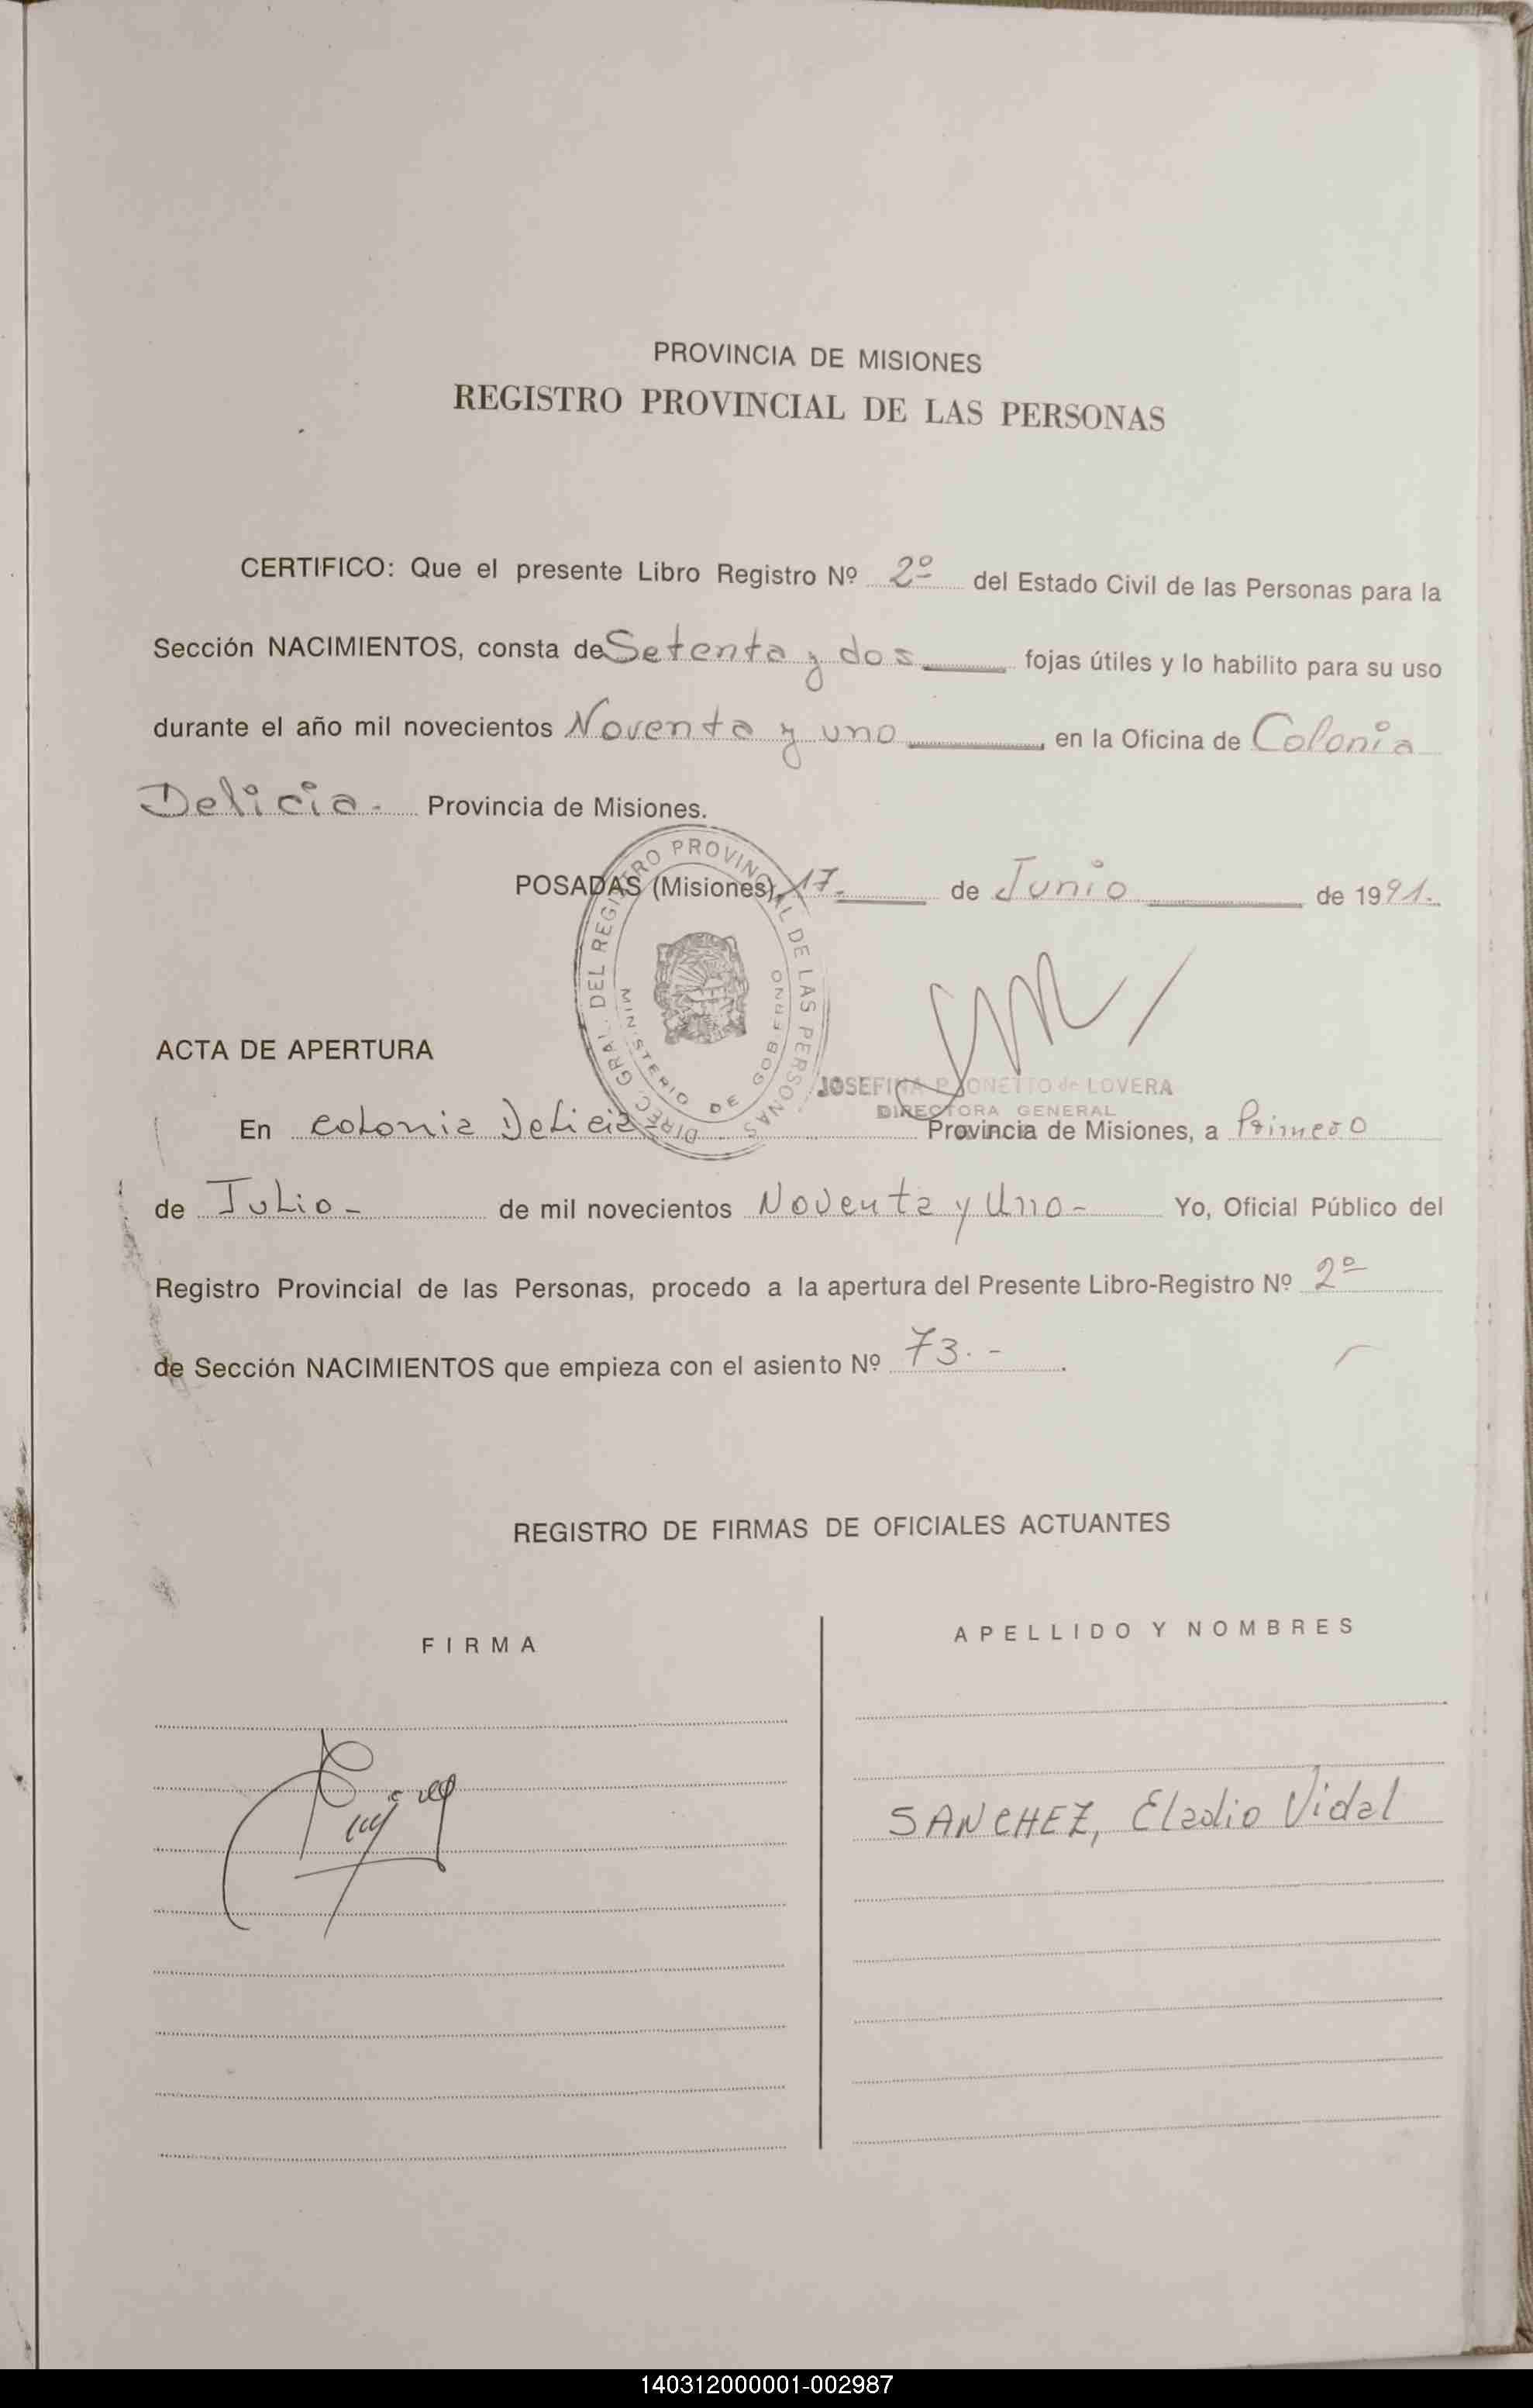 PROVINCIA DE MISIONES
REGISTRO PROVINCIAL DE LAS PERSONAS
CERTIFICO: Que el presente Libro Registro Nº 2º del Estado Civil de las Personas para la
Sección NACIMIENTOS, consta de Setenta y dos fojas útiles y lo habilito para su uso
durante el año mil novecientos Noventa y uno en la Oficina de Colonia
Delicia.- Provincia de Misiones.
POSADAS (Misiones), 17 de Junio de 1991.
DIREC. GRAL. DEL REGISTRO PROVINCIAL DE LAS PERSONAS
MINISTERIO DE GOBIERNO
JOSEFINA LOVERA
DIRECTORA GENERAL
ACTA DE APERTURA
En Colonia Delicia Provincia de Misiones, a Primero
de Julio- de mil novecientos Noventa y Uno- Yo, Oficial Público del
Registro Provincial de las Personas, procedo a la apertura del Presente Libro-Registro Nº 2º
de Sección NACIMIENTOS que empieza con el asiento Nº 73.-.
REGISTRO DE FIRMAS DE OFICIALES ACTUANTES
FIRMA
APELLIDO Y NOMBRES
SANCHEZ, Eladio Vidal
140312000001-002987